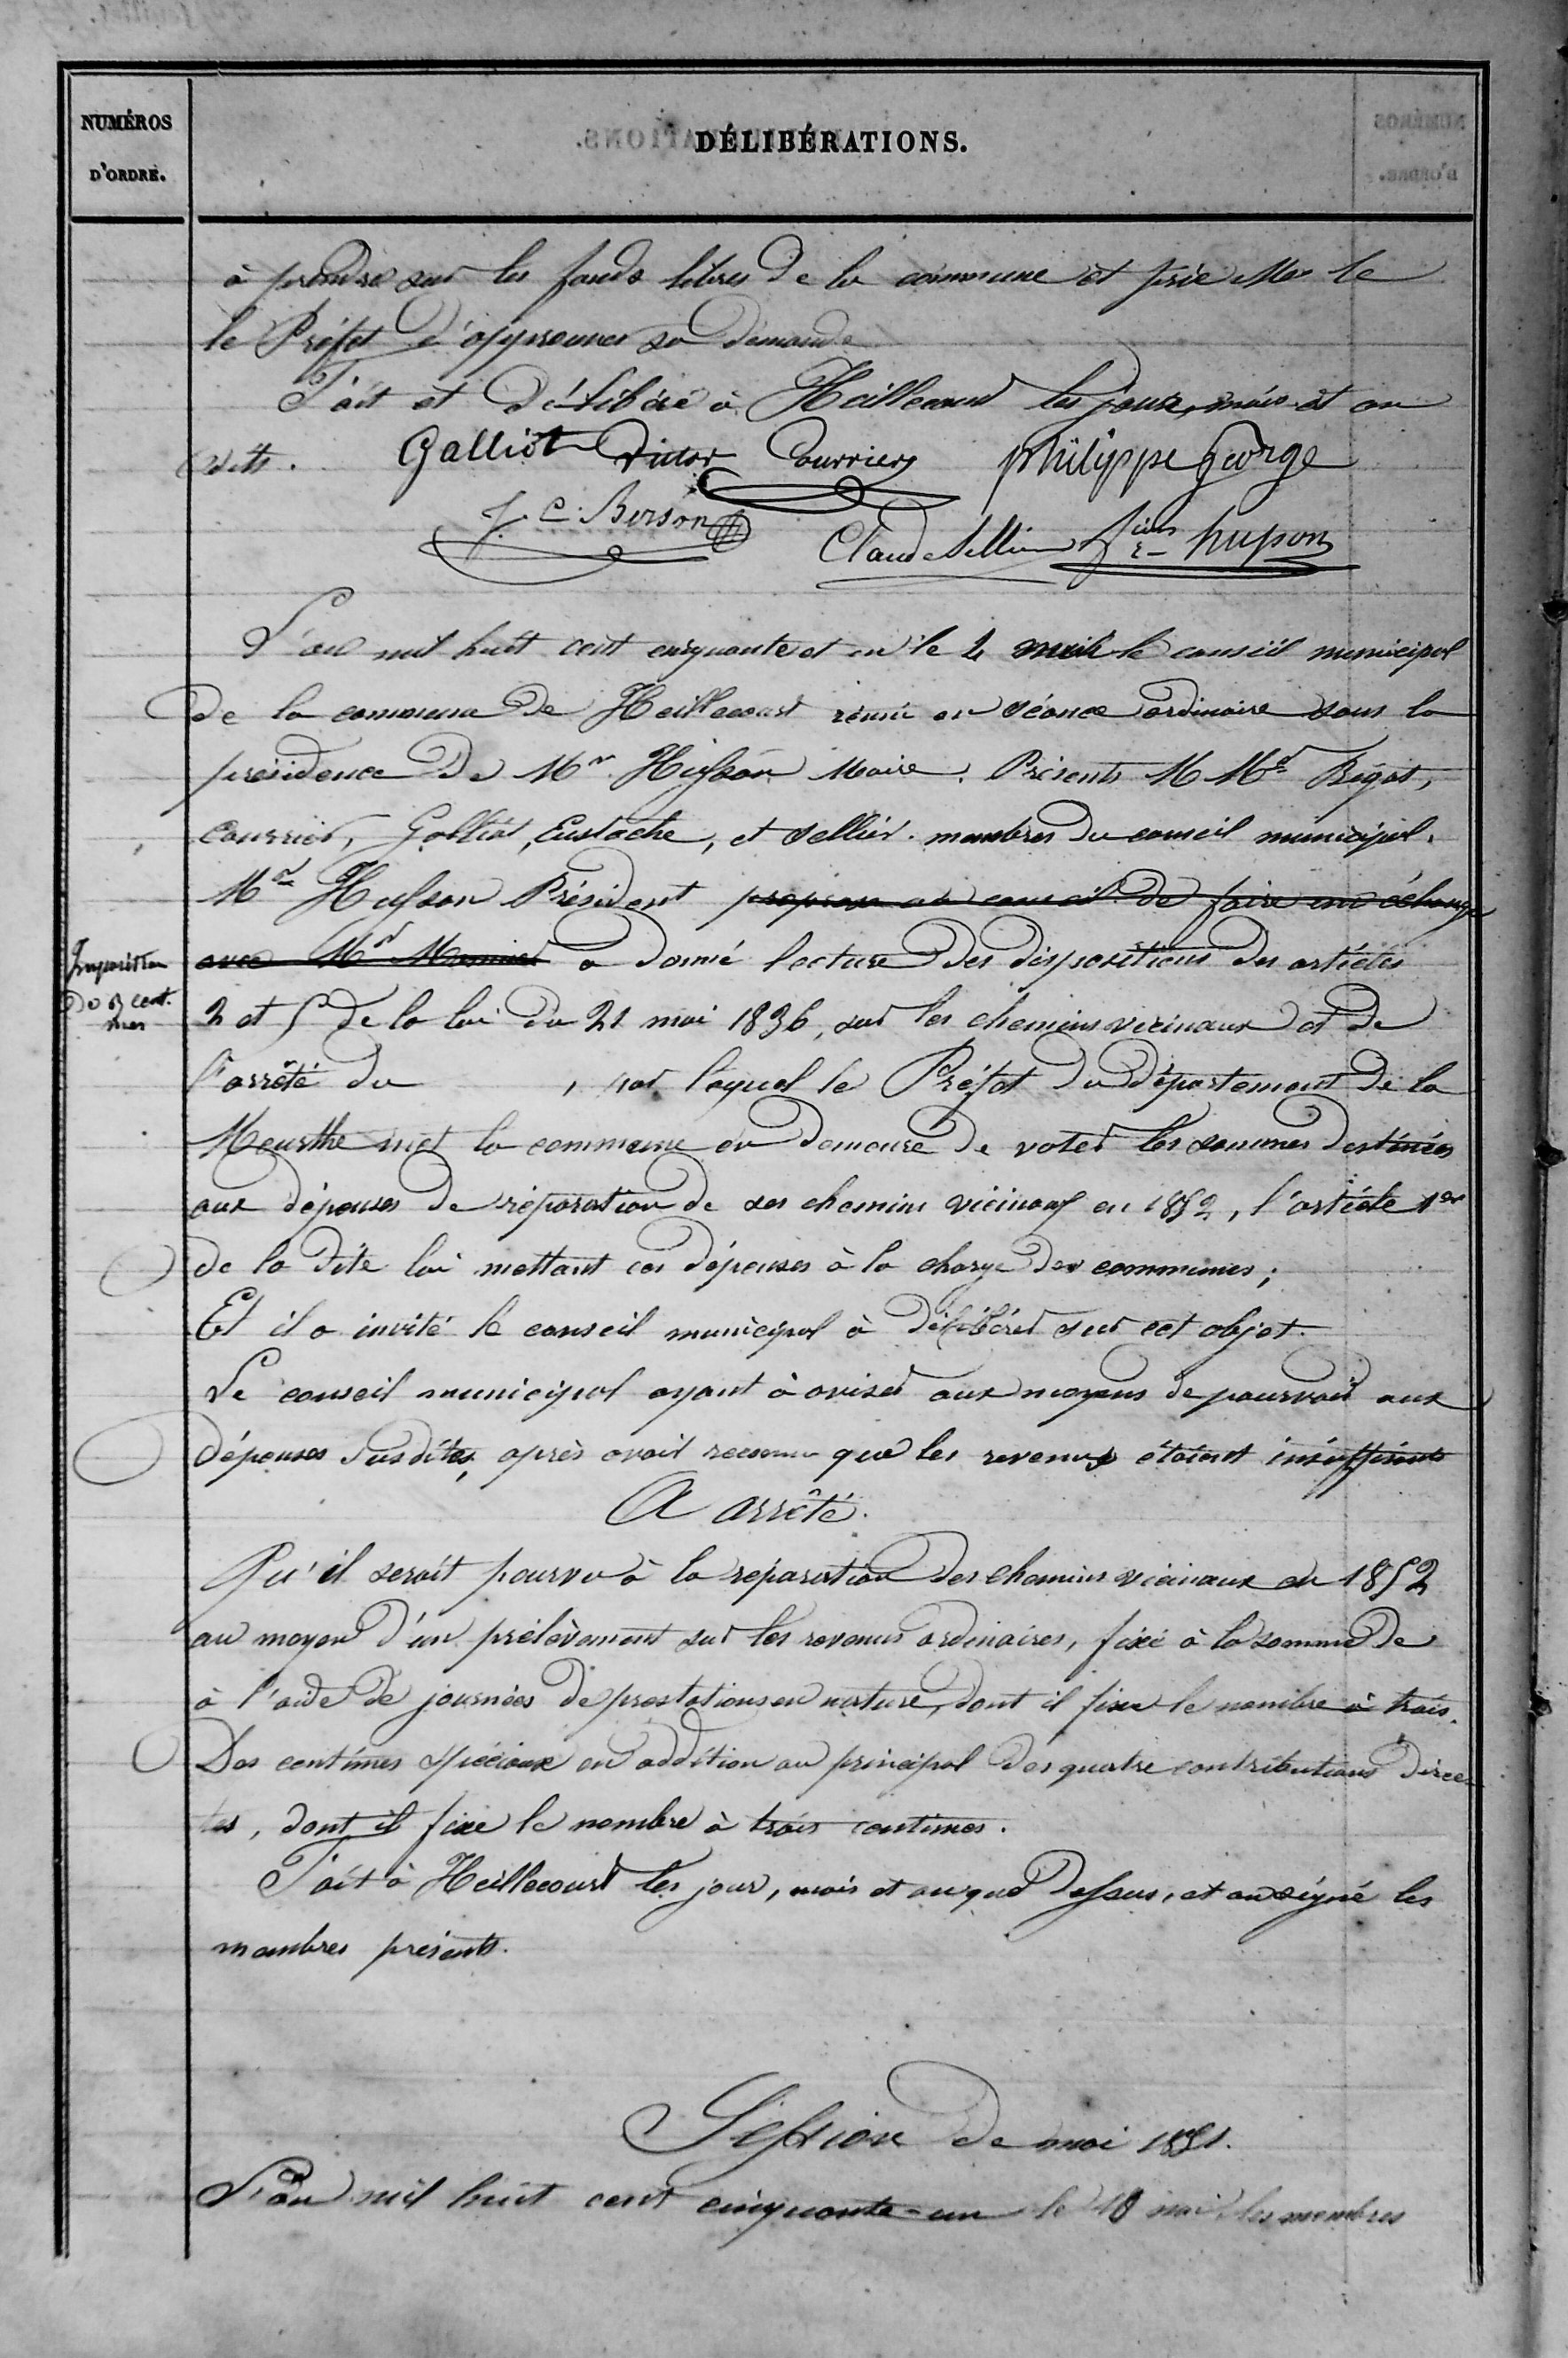 NUMÉROS
D'ORDRE.
DÉLIBÉRATIONS.
à prendre sur les fonds libres de la commune et prie Mr le
le Préfet d'approuver sa demande
Fait et délibéré à Heillecourt les jour, mois et an
dits. Galliot Victor Courrier Philippe George
J. C. Berson Claude Sellier husson
L'an mil huit cent cinquante et un le 4 mai le conseil municipal
de la commune de Heillecourt réuni en séance ordinaire sous la
présidence de Mr Husson Maire. Présents M Mrs Bigot,
Courrier, Galliot, Eustache, et Sellier. membres du conseil municipal.
Mr Husson Président propose au conseil de faire un échange
avec Mr a donné lecture des dispositions des articles
Imposition
de 3 cent.
imes
2 et 5 de la loi du 21 mai 1836, sur les chemins vicinaux et de
l'arrêté du , par lequel le Préfet du département de la
Meurthe met la commune en demeure de voter les sommes destinées
aux dépenses de réparation de ses chemins vicinaux en 1852, l'article 1er
de la dite loi mettant ces dépenses à la charge des communes;
Et il a invité le conseil municipal à délibérer sur cet objet.
Le conseil municipal ayant à aviser aux moyens de pourvoir aux
dépenses susdites, après avoir reconnu que les revenus étaient insuffisants
A arrêté.
Qu'il serait pourvu à la réparation des chemins vicinaux en 1852
au moyen d'un prélèvement sur les revenus ordinaires, fixé à la somme de
à l'aide de journées de prestations en nature, dont il fixe le nombre à trois.
Des centimes spéciaux en addition au principal des quatre contributions direc
tes, dont il fixe le nombre à trois centimes.
Fait à Heillecourt les jour, mois et an que dessus, et ont signé les
membres présents.
Session de mai 1851.
L'an mil huit cent cinquante-un le 10 mai les membres